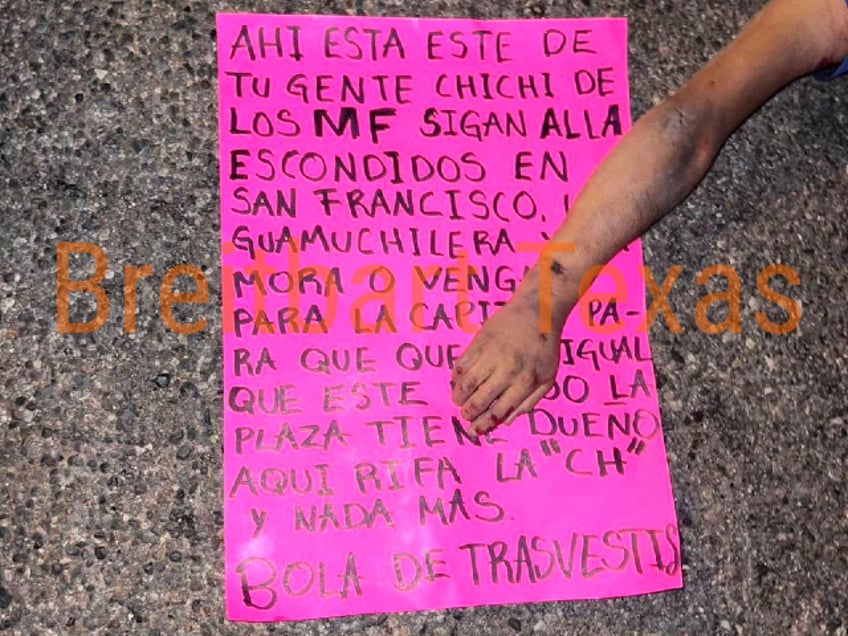 AHI ESTA ESTE DE
TU GENTE CHICHI DE
LOS MF SIGAN ALLA
ESCONDIDOS EN
SAN FRANCISCO.
GUAMUCHILERA Y
MORA O
PARA LA PA-
RA QUE IGUAL
QUE ESTE LA
PLAZA TIENE DUENO
AQUI RIFA LA "CH"
Y NADA MAS.
BOLA DE TRASVESTIS
Breitbart Texas